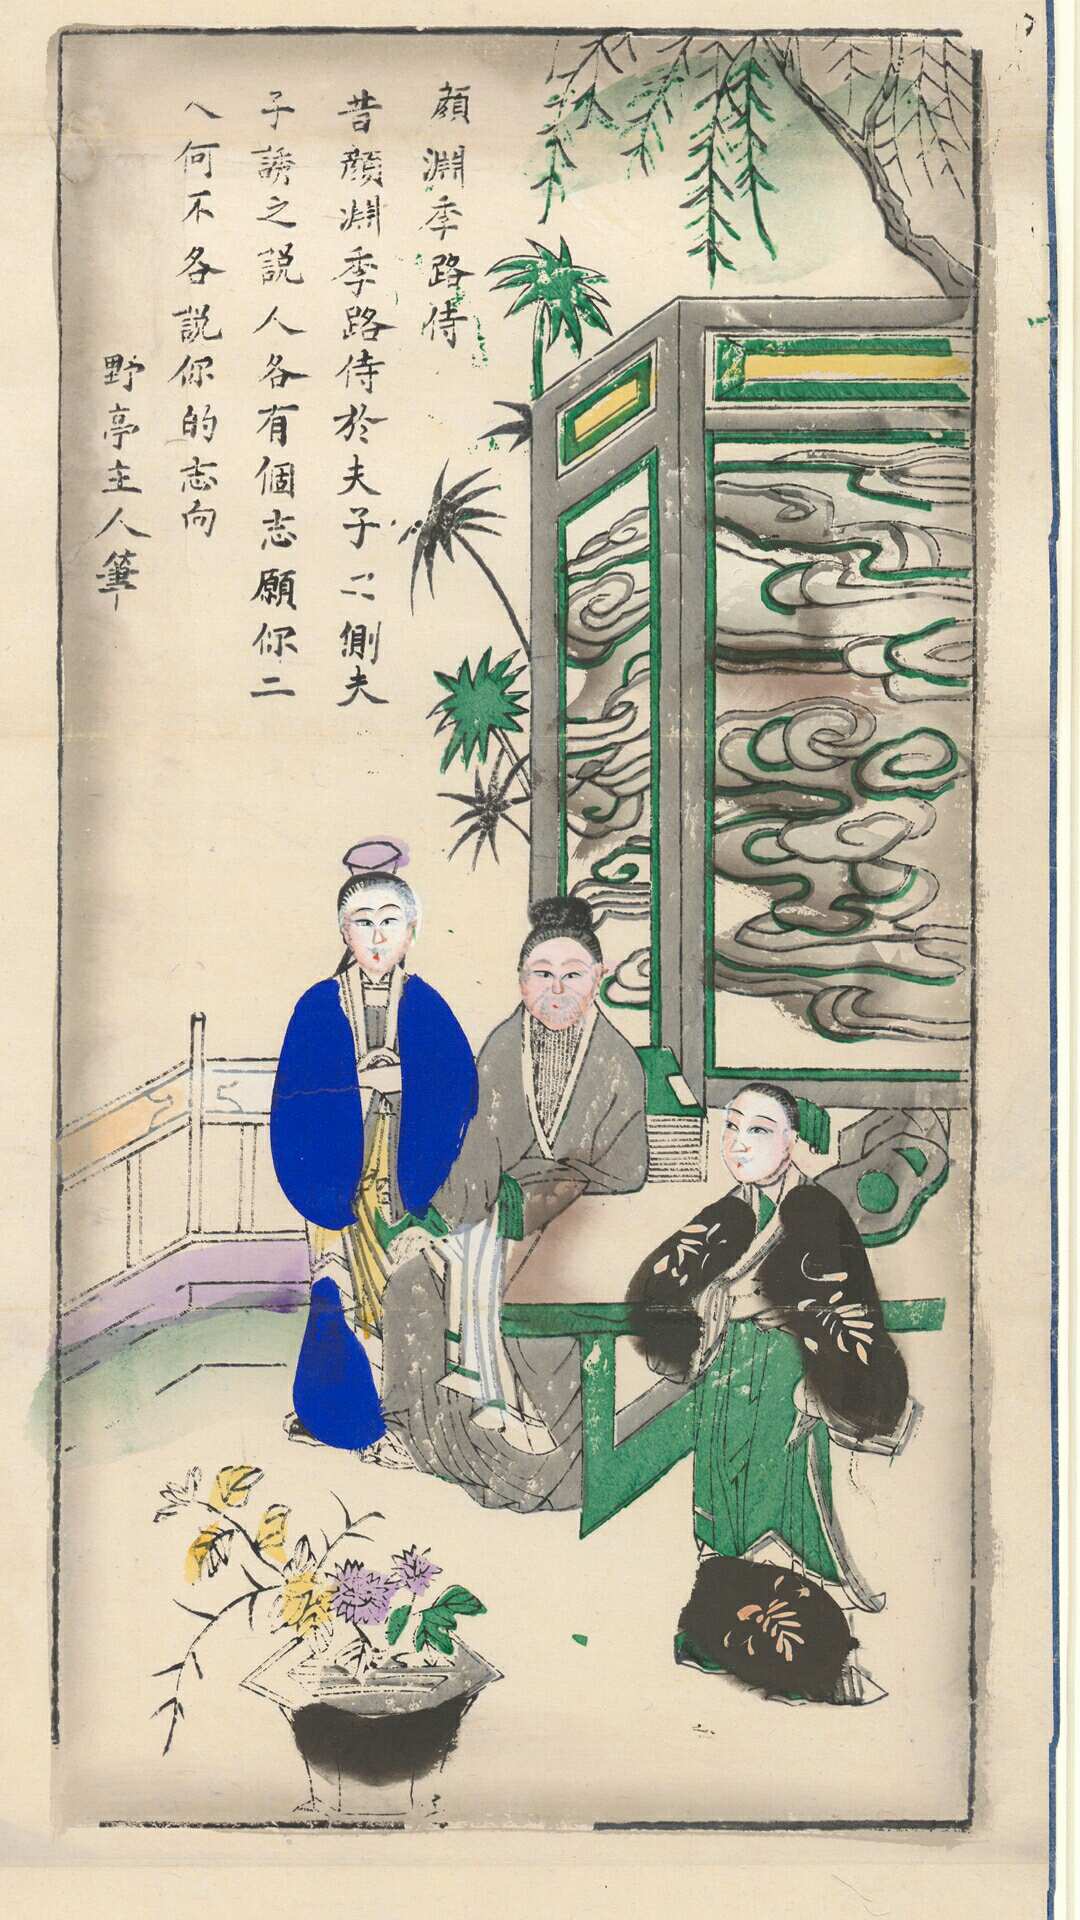 顏淵季路侍
昔顏淵季路侍於夫子之側夫
子誘之説人各有個志願你二
人何不各説你的志向
野亭主人筆